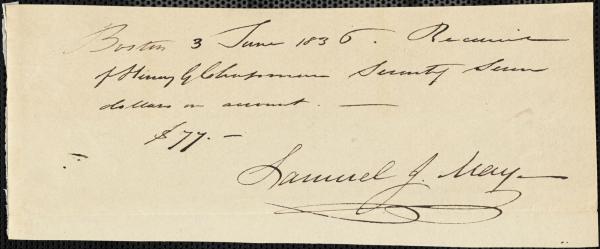 Boston 3 June 1836. Received
of Henry G Chapman Seventy Seven
dollars on account. —
$77. —
Samuel J. May